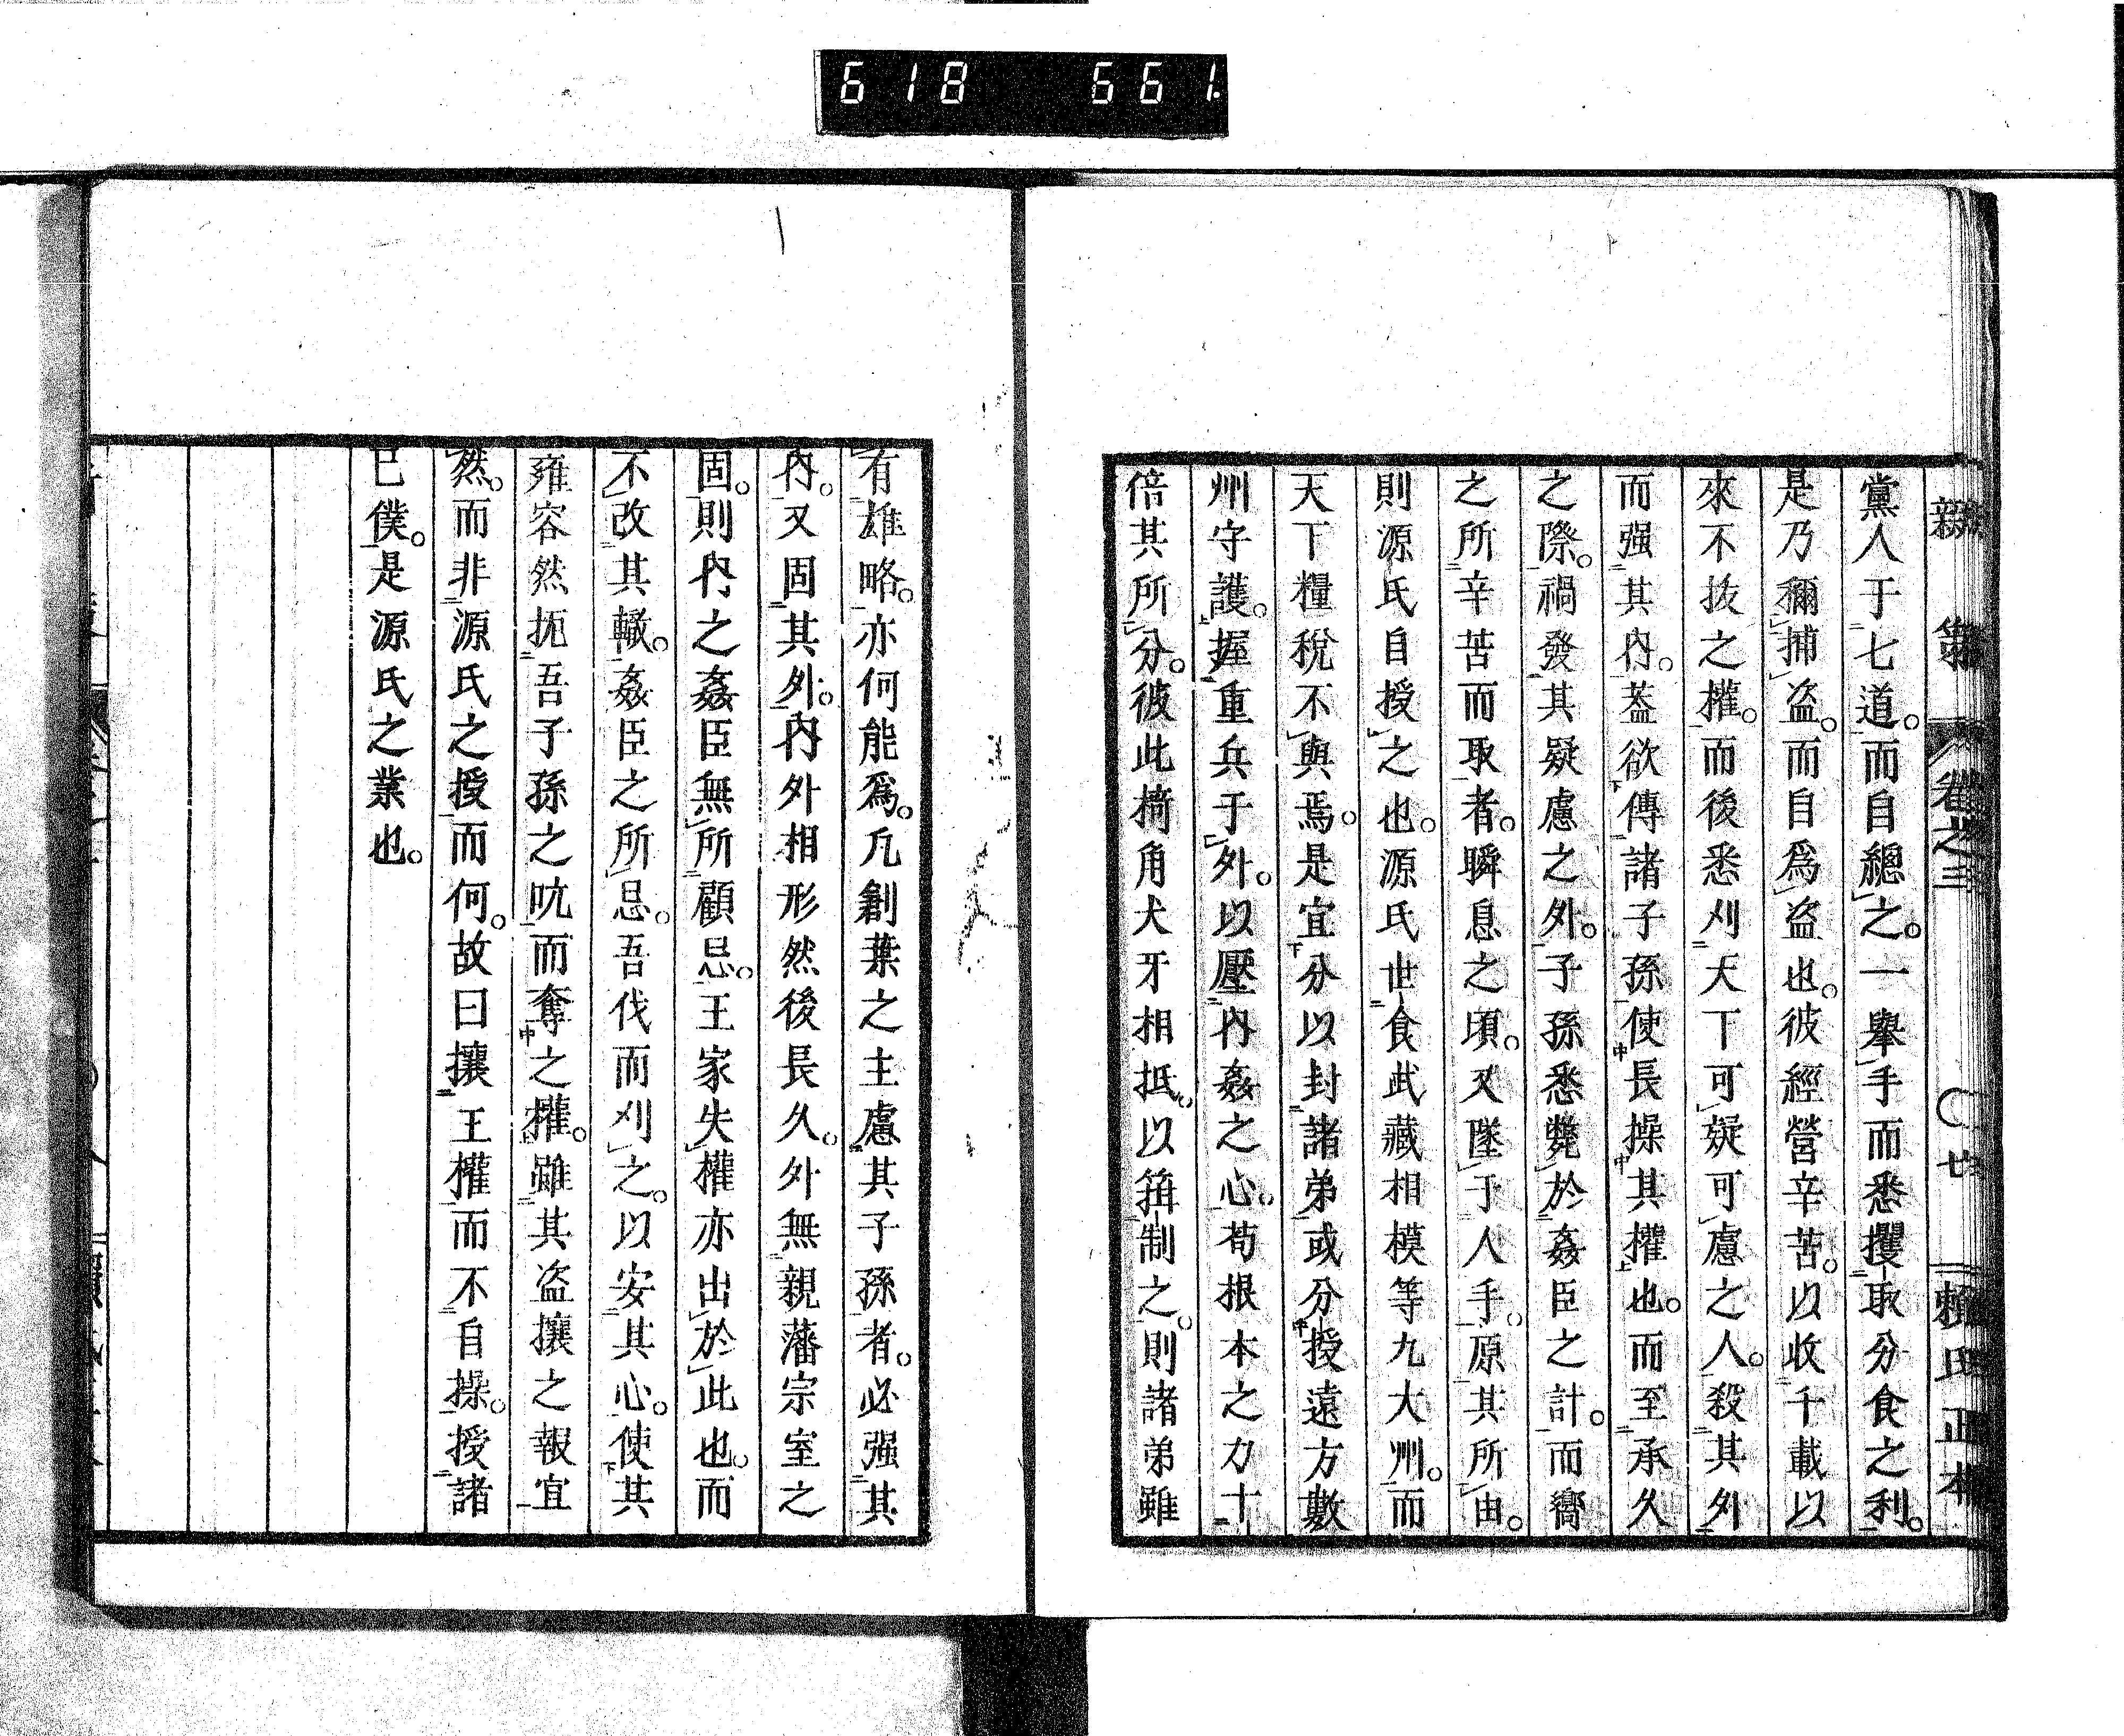 618 661
新策 卷之三 廿 賴氏正本
黨人于七道。而自總之。一擧手而悉攫取分食之利。
是乃獮捕盜。而自爲盜也。彼經營辛苦。以收千載以
來不拔之權。而後悉刈天下可疑可慮之人。殺其外
而强其內。蓋欲傳諸子孫使長操其權也。而至承久
之際。禍發其疑慮之外。子孫悉斃於姦臣之計。而嚮
之所辛苦而取者。瞬息之頃。又墜于人手。原其所由。
則源氏自授之也。源氏世食武藏相模等九大州。而
天下糧稅不與焉。是宜分以封諸弟或分授遠方數
州守護。握重兵于外。以壓內姦之心。苟根本之力十
倍其所分。彼此掎角犬牙相抵。以箝制之。則諸弟雖
有雄略。亦何能爲。凢創業之主慮其子孫者。必强其
內。又固其外。內外相形然後長久。外無親藩宗室之
固。則內之姦臣無所顧忌。王家失權亦出於此也。而
不改其轍。姦臣之所忌。吾伐而刈之。以安其心。使其
雍容然扼吾子孫之吭而奪之權。雖其盜攘之報宜
然。而非源氏之授而何。故曰攘王權而不自操。授諸
已僕。是源氏之業也。